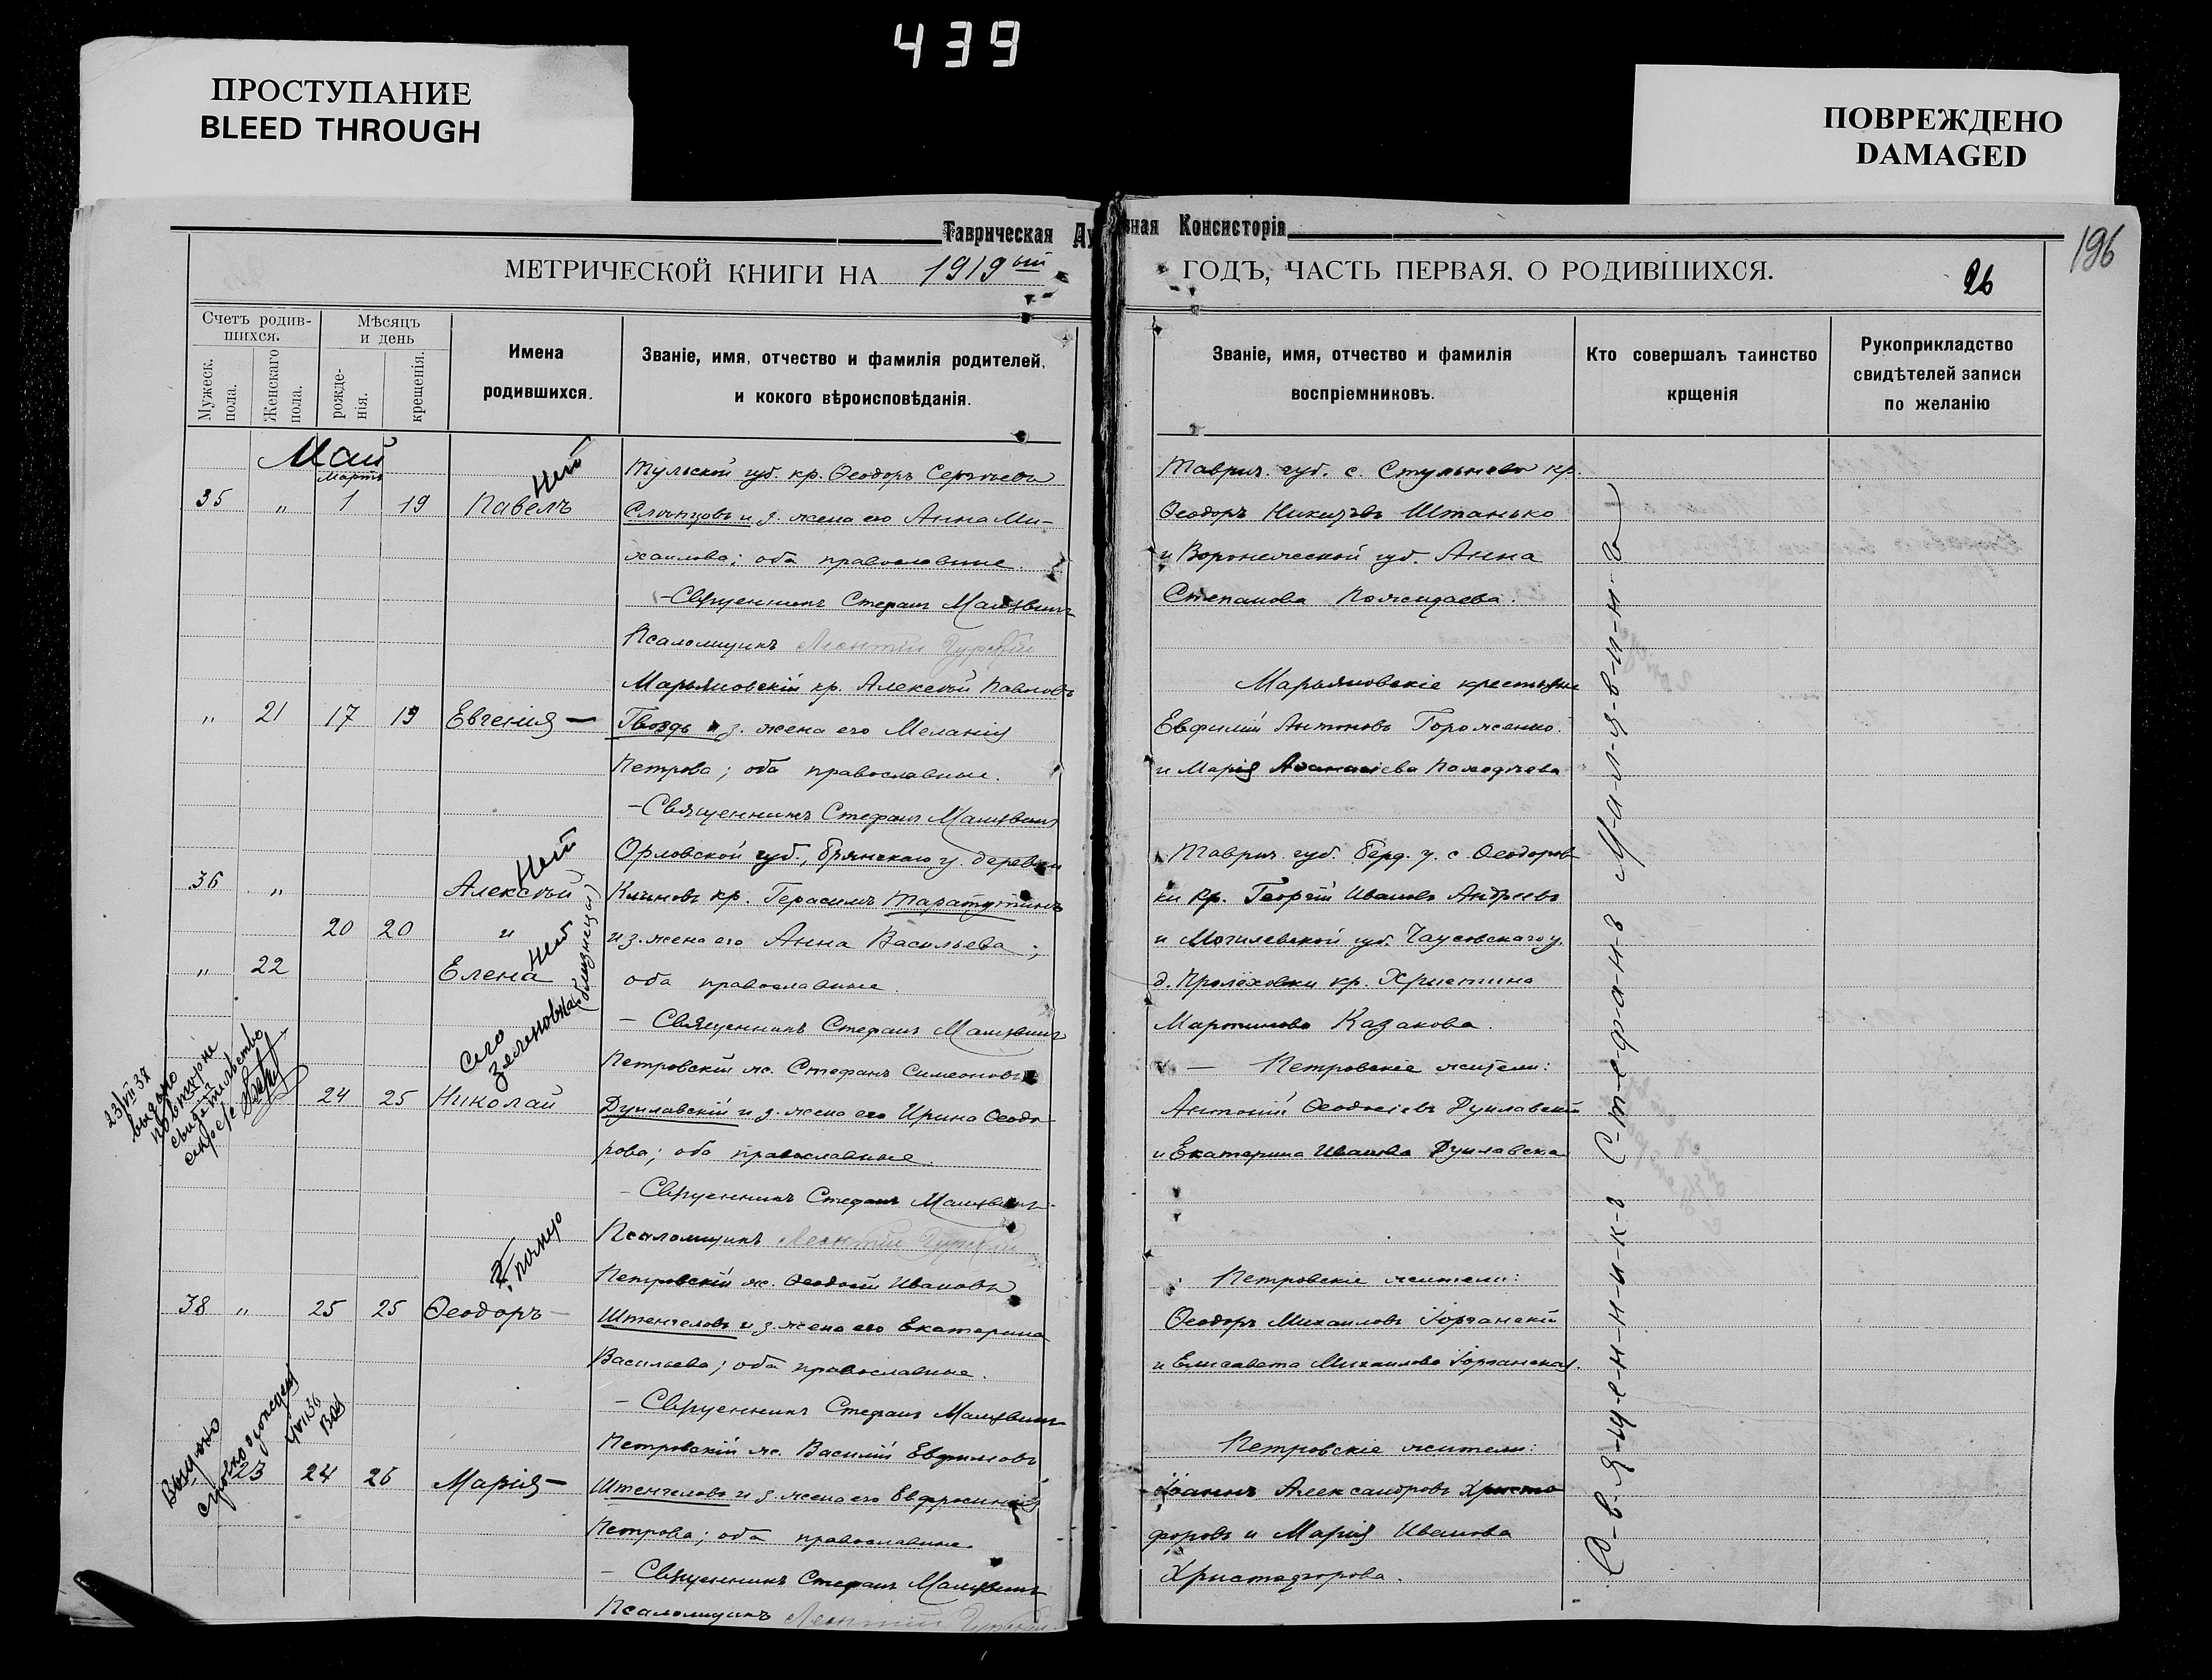 439
ПРОСТУПАНИЕ
BLEED THROUGH
ПОВРЕЖДЕНО
DAMAGED
Таврическая Ду
вная Консисторія
196
МЕТРИЧЕСКОЙ КНИГИ НА 1919ый
ГОДЪ, ЧАСТЬ ПЕРВАЯ. О РОДИВШИХСЯ.
26
Счетъ родив-
шихся.
Мужеск.
пола.
Женскаго
пола.
Мѣсяцъ
и день
рожде-
нія.
крещенія.
Имена
родившихся.
Званіе, имя, отчество и фамилія родителей,
и кокого вѣроисповѣданія.
Званіе, имя, отчество и фамилія
воспріемниковъ.
Кто совершалъ таинство
крщенія
Рукоприкладство
свидѣтелей записи
по желанію
Май
Мартъ
35 " 1 19 Павелъ
Нет
Тульской губ. кр. Ѳеодоръ Сергѣевъ
и з. жена его Анна Ми-
хаилова; оба православные.
– Священникъ Стефанъ Малявинъ
Псаломщикъ Леонтій
Таврич. губ. с. Стульнево кр.
Ѳеодоръ Никитовъ Штанько
и Воронежской губ. Анна
Степанова Пожидаева.
" 21 17 19 Евгенія –
Марьяновскій кр. Алексѣй Павловъ
Гвоздь и з. жена его Меланія
Петрова; оба православные.
– Священникъ Стефанъ Малявинъ
Марьяновскіе крестьяне
Евфимій Антоновъ Гороженко
и Марія Аѳанасіева
36 " Алексѣй
Нет
20 20 и
" 22 Елена
Нет
(близнецы)
Орловской губ., Брянскаго у. деревни
кр. Герасимъ Таратутинъ
и з. жена его Анна Васильева;
оба православные.
– Священникъ Стефанъ Малявинъ
Таврич. губ. Берд. у. с. Ѳеодоров
ки кр. Георгій Ивановъ Андреевъ
и Могилевской губ. Чаусовскаго у.
д. кр. Христина
Мартинова Казакова.
23/VII 37
выдано
повторне
свидетельство
24 25 Николай
Петровскій ж. Стефанъ Симеоновъ
Дуплавскій и з. жена его Ирина Ѳеодо
рова; оба православные.
– Священникъ Стефанъ Малявинъ
Псаломщикъ Леонтій
– Петровскіе жители:
Антоній Ѳеодосіевъ Дуплавскій
и Екатерина Иванова Дуплавска
38 " 25 25 Ѳеодоръ –
Петровскій ж. Ѳеодосій Ивановъ
Штенгеловъ и з. жена его Екатерина
Васильева; оба православные.
– Священникъ Стефанъ Малявинъ
Петровскіе жители:
Ѳеодоръ Михаиловъ
и Елисавета Михаилова
Выдано
" 23 24 26 Марія –
Петровскій ж. Василій Евфимовъ
Штенгеловъ и з. жена его Евфросинія
Петрова; оба православные.
– Священникъ Стефанъ Малявинъ
Псаломщикъ Леонтій
Петровскіе жители:
Іоаннъ Александровъ Христо
форовъ и Марія Иванова
Христофорова.
С-в-я-щ-е-н-н-и-к-ъ С-т-е-ф-а-н-ъ М-а-л-я-в-и-н-ъ